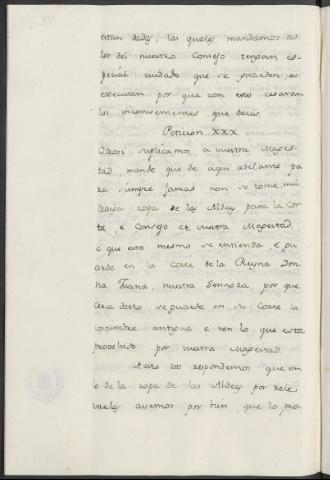 estan dadas, las quales mandamos a
los del nuestro Consejo tengan es-
pecial cuidado que se guarden, e
executen por que con esto cesaran
los inconvenientes que decis.
Peticion XXX
Otrosi suplicamos a vuestra Mages-
tad, mande que de aqui adelante pa
ra siempre jamas non se tome, nin
traiga ropa de las Aldeas para la Cor
te, e Consejo de vuestra Magestad,
e que esto mismo se entienda, e gu
arde en la Corte de la Reyna Don-
ña Juana, nuestra Sennora, por que
cerca desto se guarde en su Corte la
costumbre antigua e non lo que esta
provehido por vuestra Magestad.
A esto vos respondemos que en
lo de la ropa de las Aldeas por rele
varles avemos por bien, que lo pro-